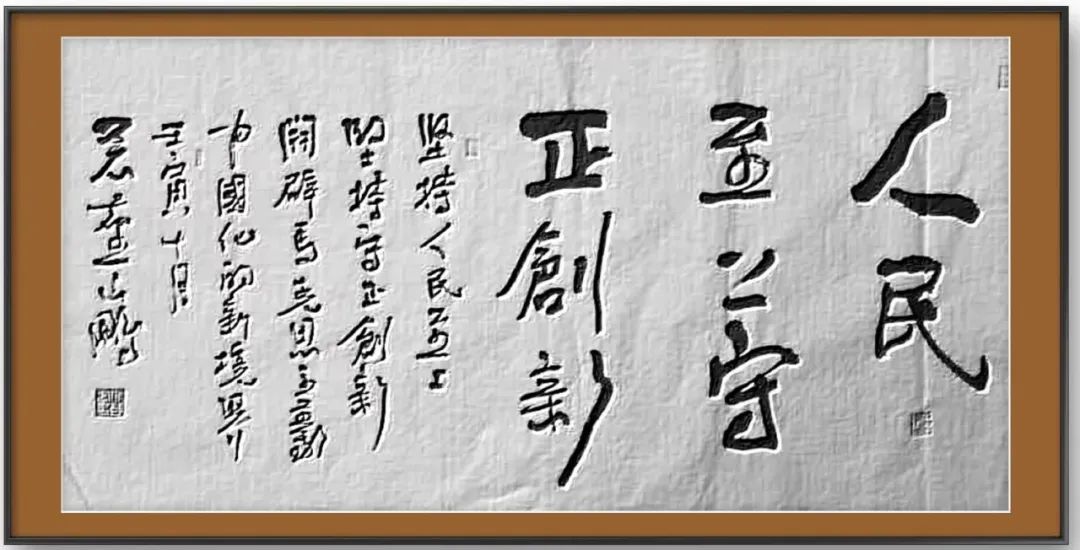 人民
至上守
正創新
坚持人民至上
堅持守正創新
開辟馬克思主義
中國化的新境界
壬寅十月